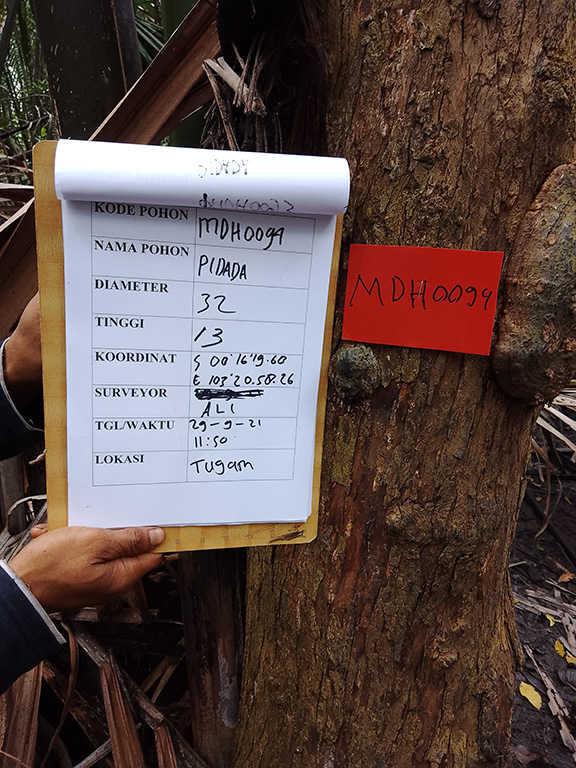 PIDADA
KODE POHON MDH0094
NAMA POHON PIDADA
DIAMETER 32
TINGGI 13
KOORDINAT S 00°16'19.60
E 103°20.58.26
SURVEYOR ALI
TGL/WAKTU 29-9-21
11:50
LOKASI Tugam
MDH0094